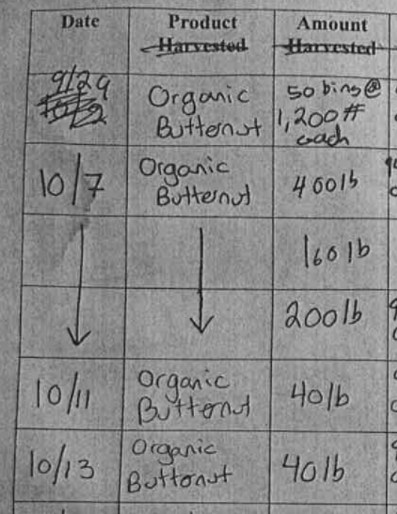 Date Product Amount
Harvested Harvested
9/29 Organic Butternut 50 bins @ 1,200# each
10/7 Organic Butternut 400lb
160lb
200lb
10/11 Organic Butternut 40lb
10/13 Organic Butternut 40lb